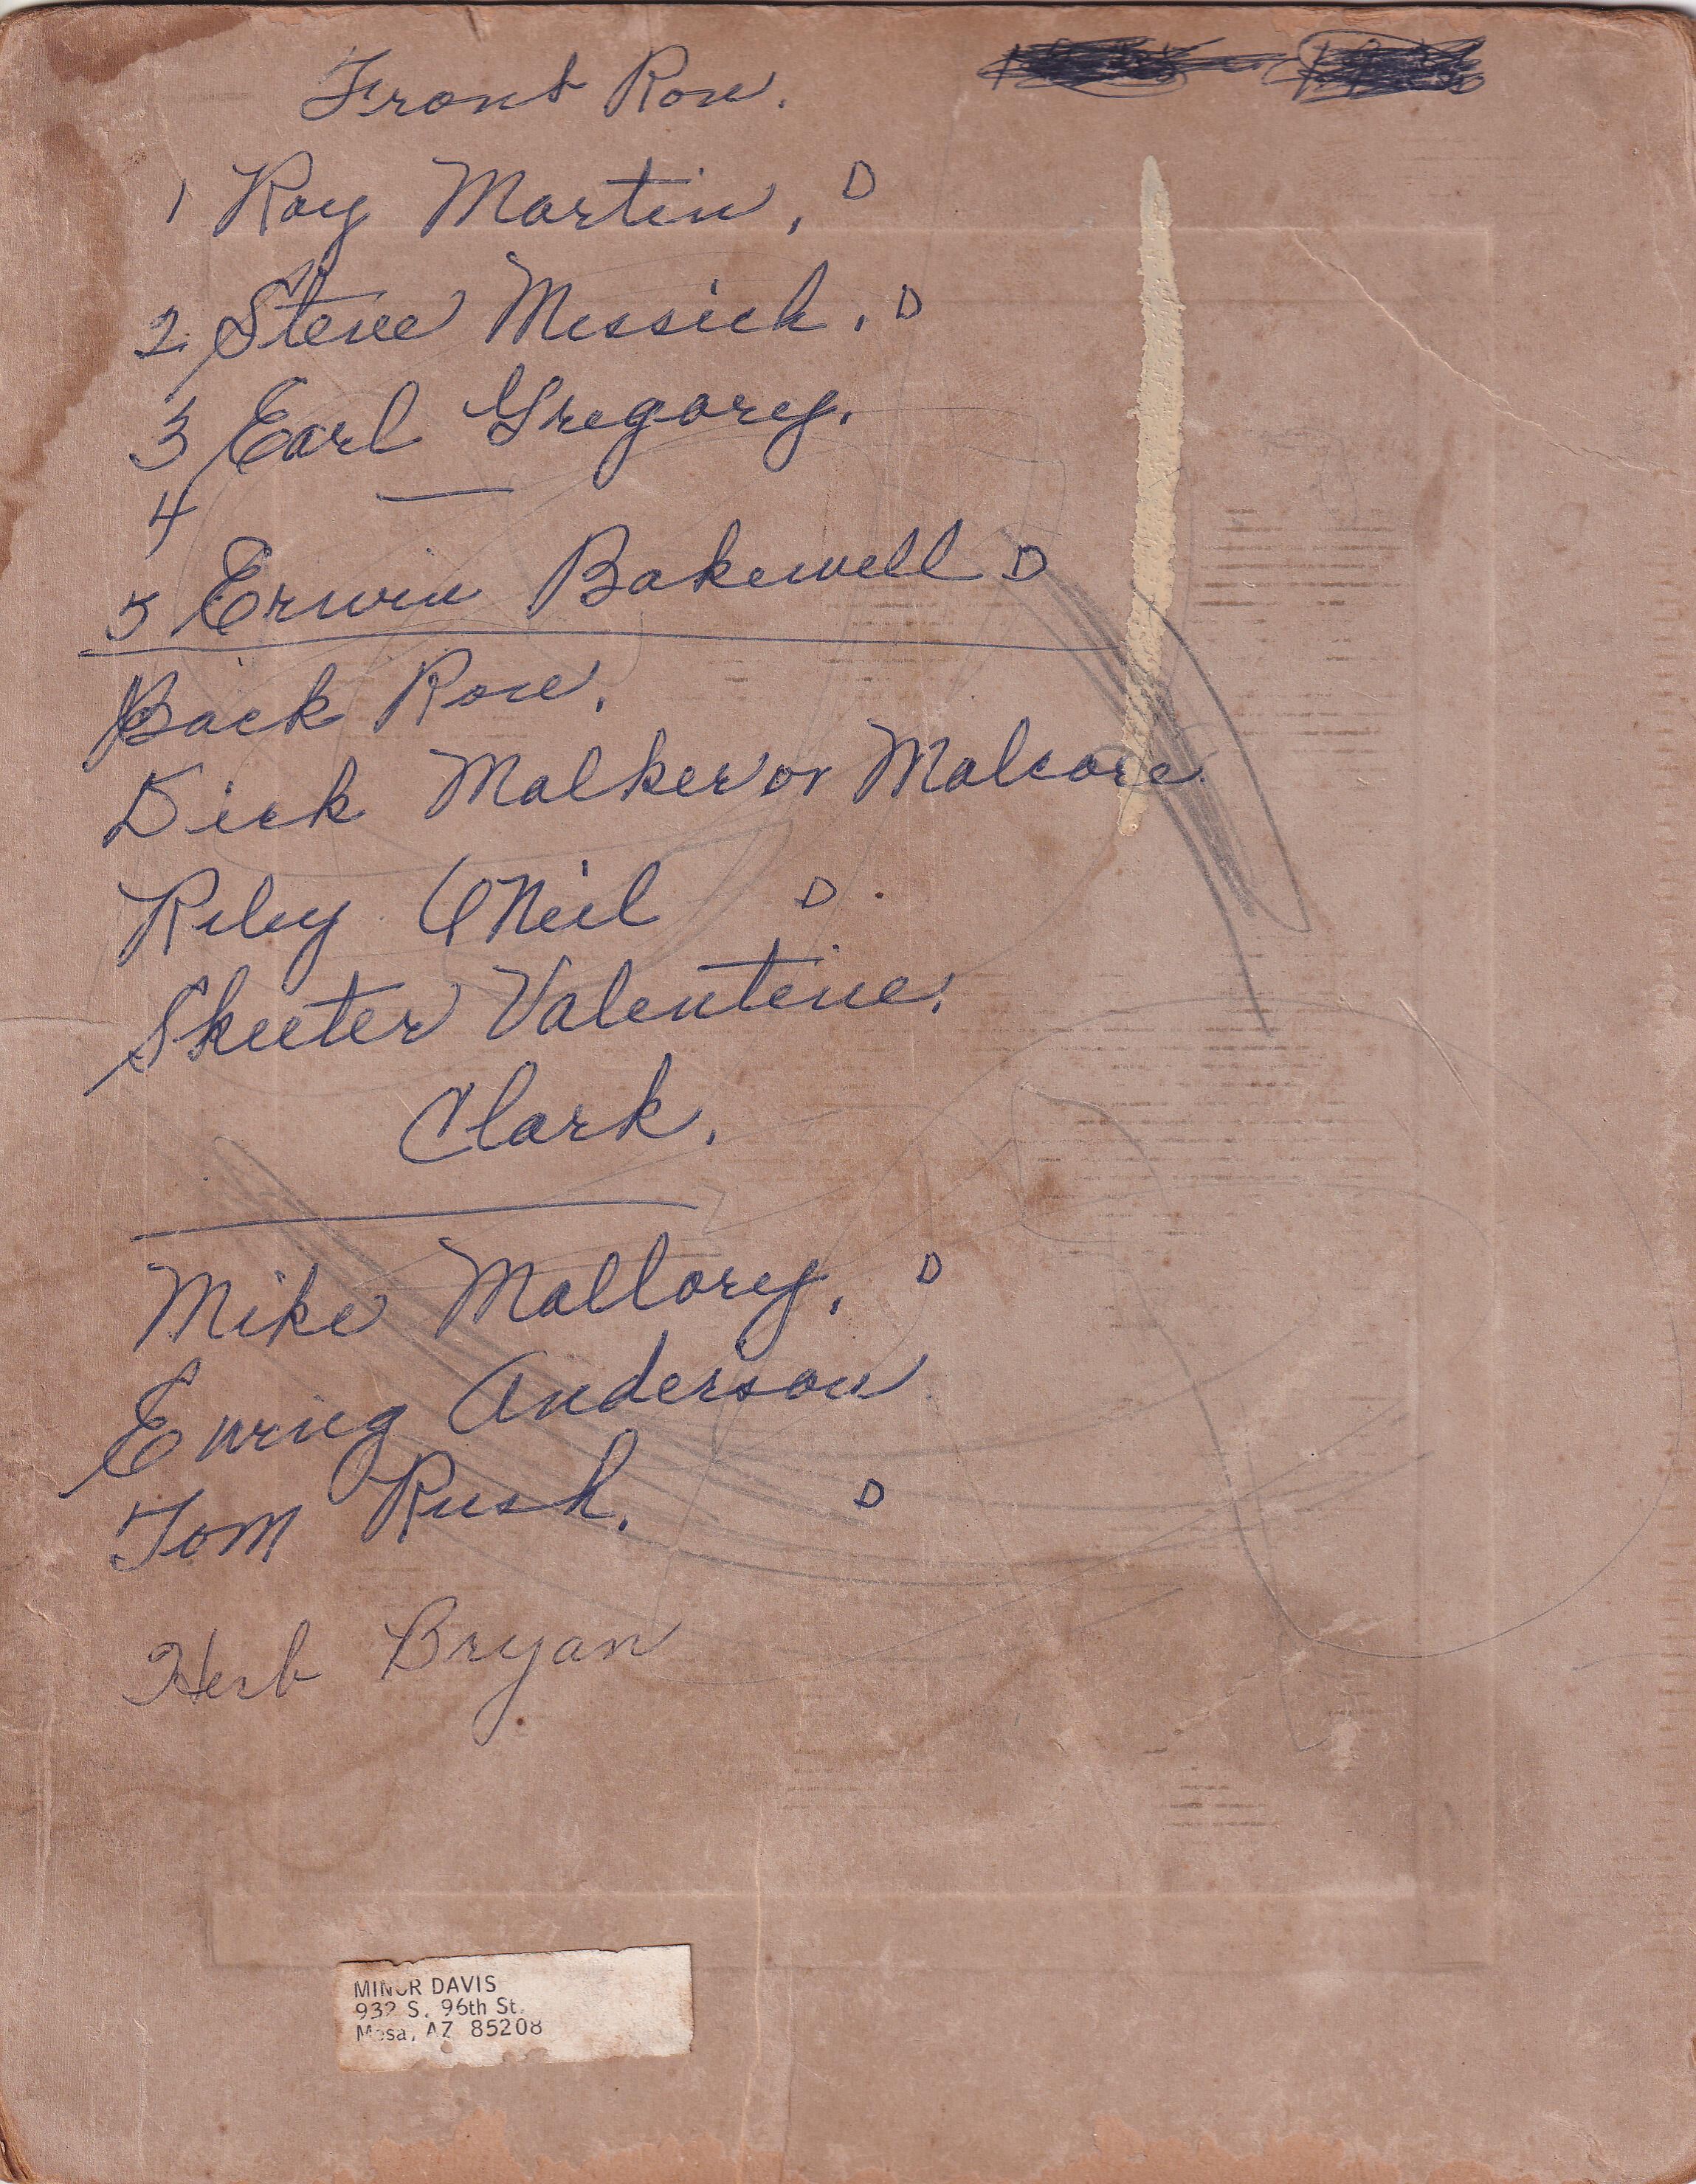 Front Row.
1 Roy Martin, D
2. Steve Messick, D
3 Earl Gregory.
4 —
5 Erwin Bakewell D
Back Row.
Dick Malker or Malcore
Riley O'Neil D
Skeeter Valentine.
Clark.
Mike Mallory, D
Ewing Anderson
Tom Rush. D
Herb Bryan
MINOR DAVIS
932 S. 96th St.
Mesa, AZ 85208